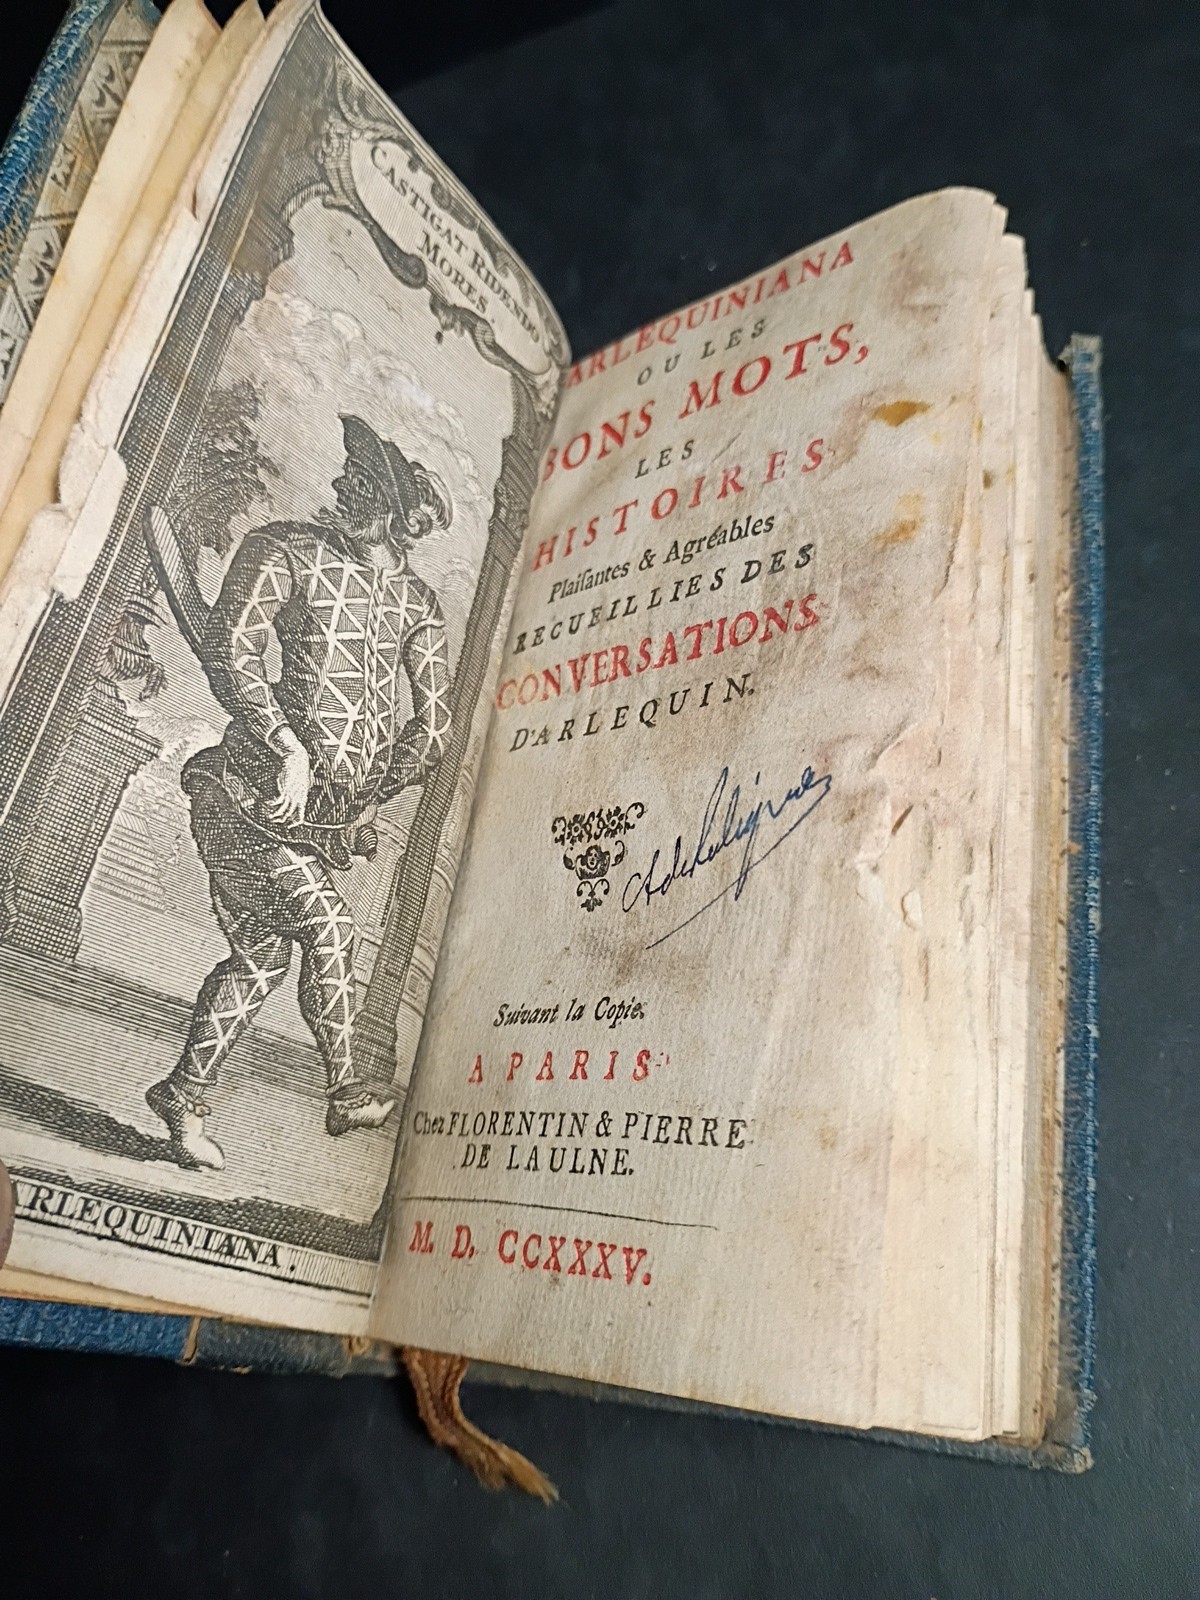 CASTIGAT RIDENDO
MORES.
ARLEQUINIANA.
ARLEQUINIANA
OU LES
BONS MOTS,
LES
HISTOIRES
Plaiſantes & Agréables
RECUEILLIES DES
CONVERSATIONS
D'ARLEQUIN.
Suivant la Copie.
A PARIS
Chez FLORENTIN & PIERRE
DE LAULNE.
M. D. CCXXXV.